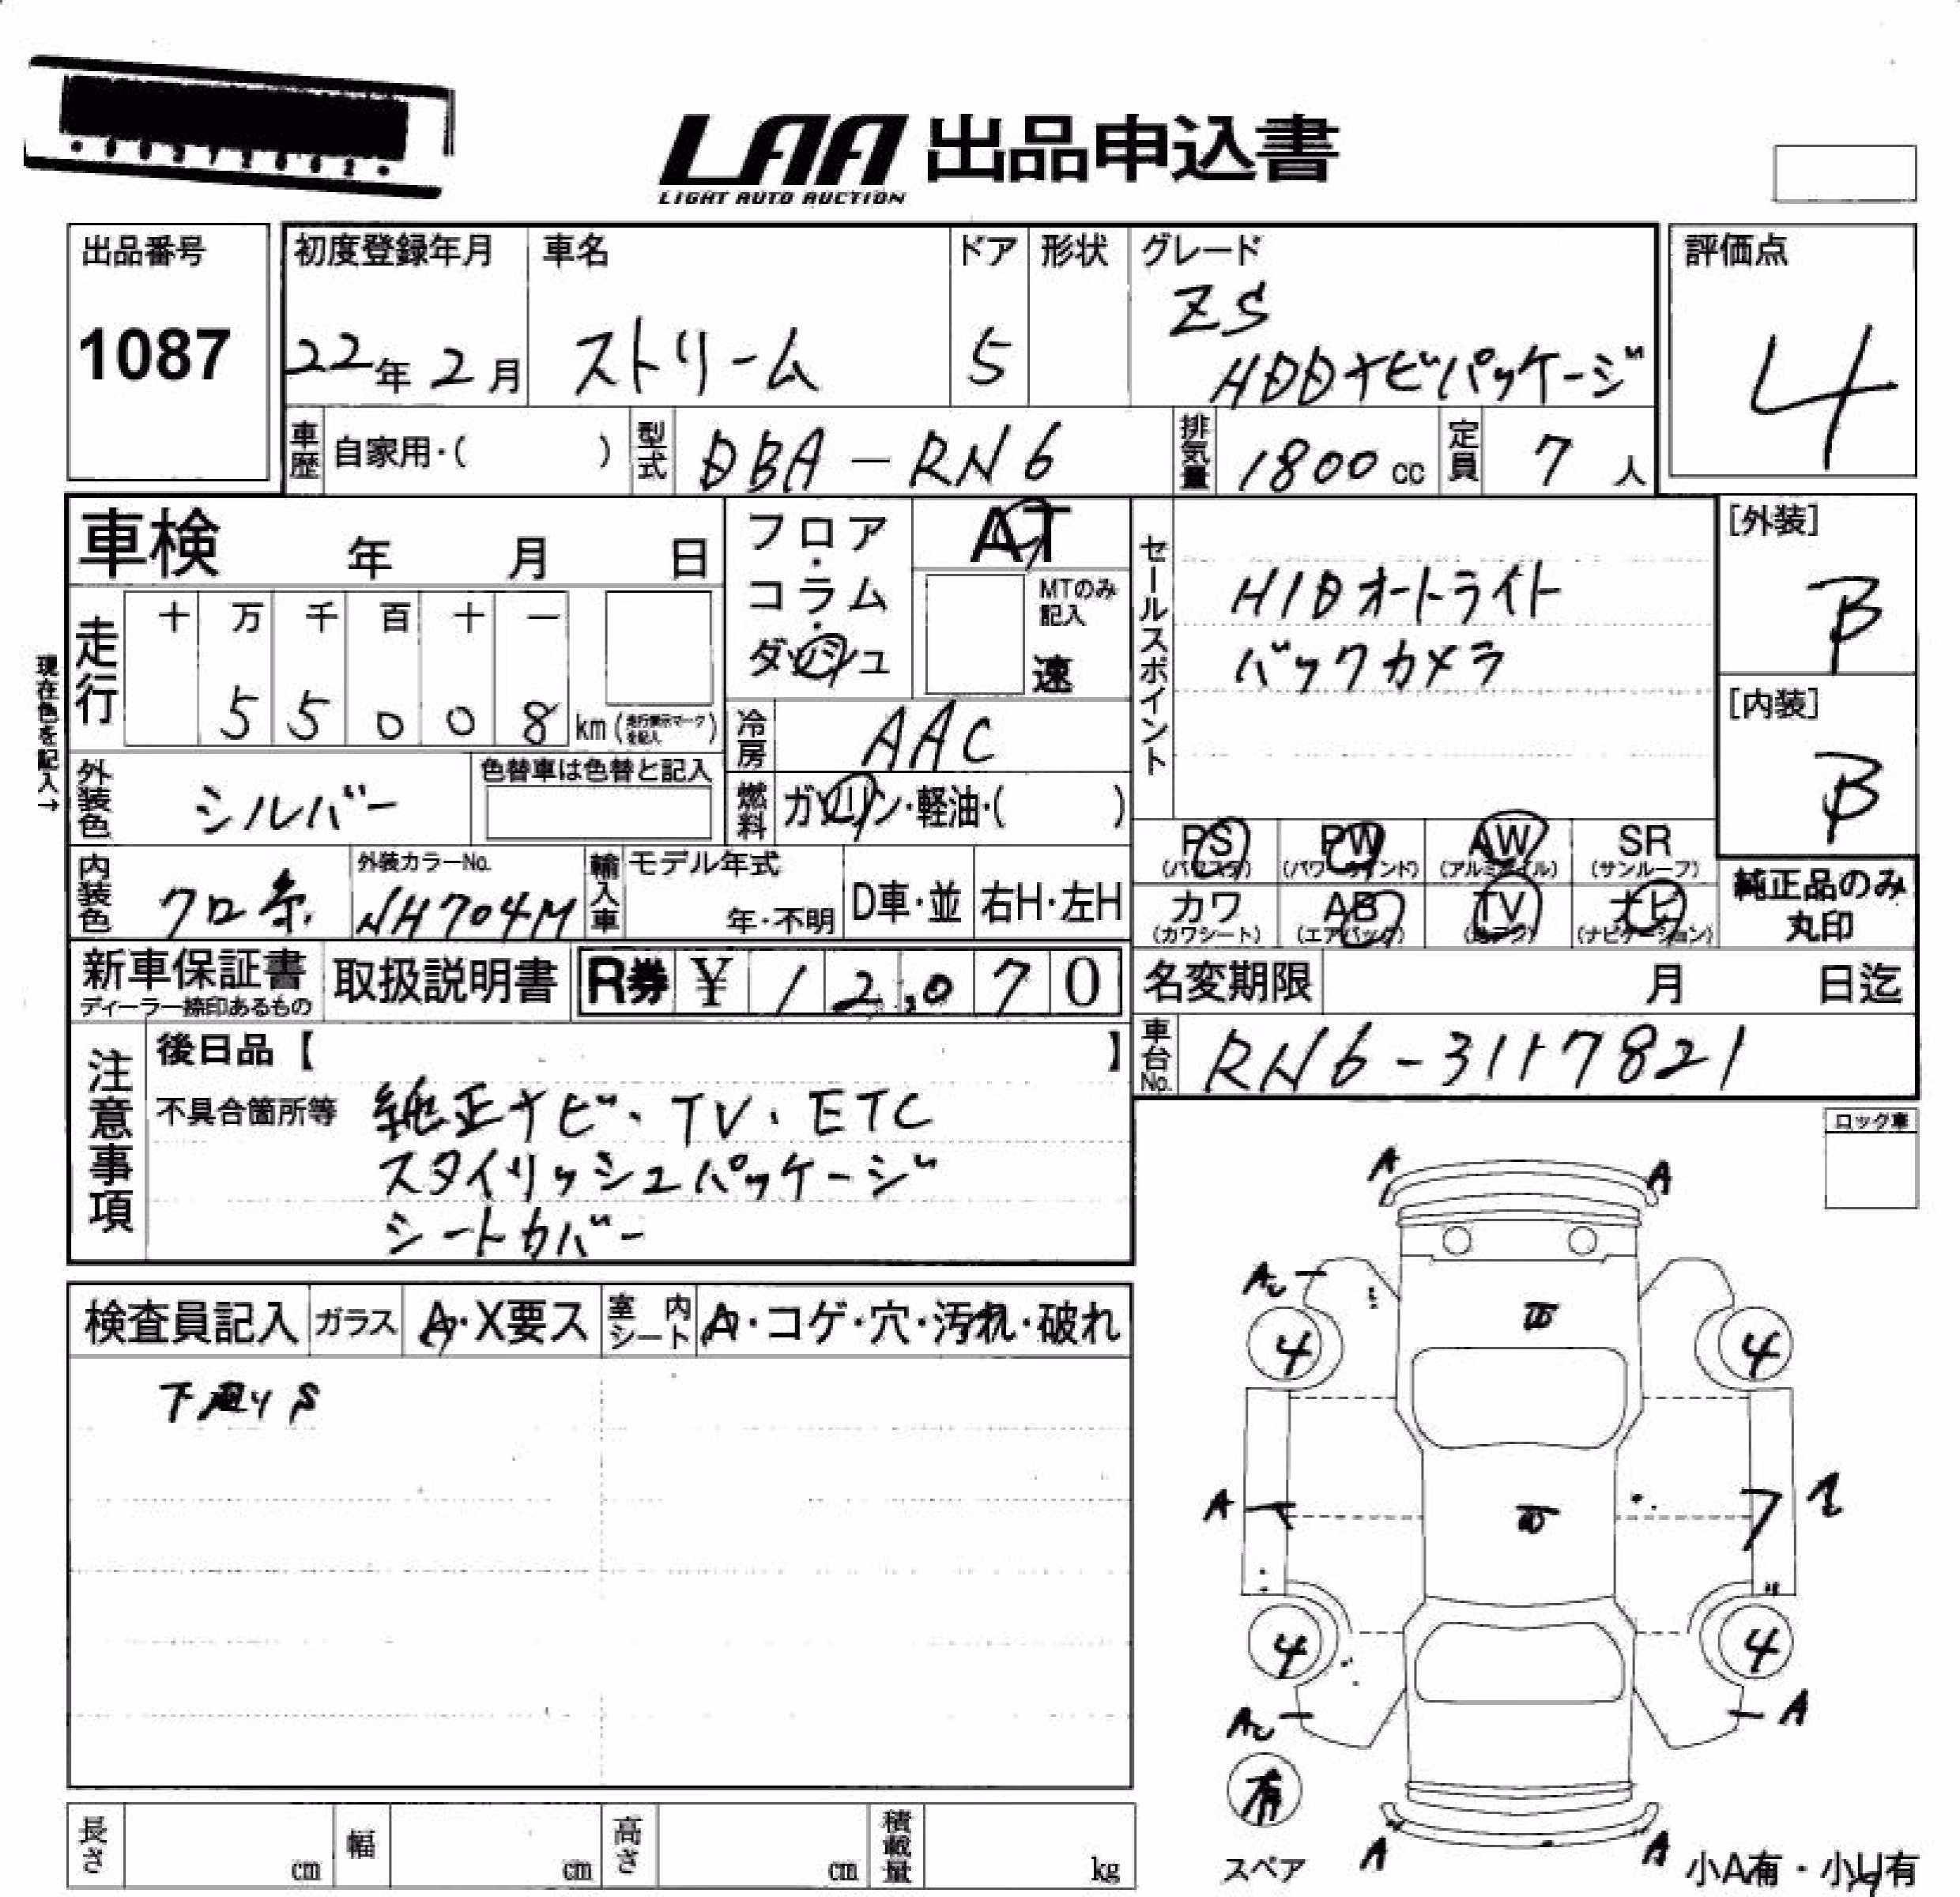 LAA 出品申込書
LIGHT AUTO AUCTION
出品番号
1087
初度登録年月
22年2月
車名
ストリーム
ドア
5
形状
グレード
ZS
HDDナビパッケージ
評価点
4
車歴 自家用・( )
型式 DBA-RN6
排気量 1800cc
定員 7人
車検 年 月 日
走行
十 万 千 百 十 一
5 5 0 0 8 km (走行表示マークを記入)
現在色を記入→
フロア・コラム・ダッシュ
AT
MTのみ記入
速
冷房 AAC
燃料 ガソリン・軽油・( )
外装色 シルバー
色替車は色替と記入
内装色 クロ
外装カラーNo.
NH704M
輸入車 モデル年式
年・不明
D車・並
右H・左H
セールスポイント
HIDオートライト
バックカメラ
[外装]
B
[内装]
B
PS (パワステ)
PW (パワーウインド)
AW (アルミホイル)
SR (サンルーフ)
カワ (カワシート)
AB (エアバック)
TV
ナビ (ナビゲーション)
純正品のみ丸印
新車保証書
ディーラー捺印あるもの
取扱説明書
R券 ¥12,070
名変期限 月 日迄
車台No. RN6-3117821
注意事項
後日品【 】
不具合箇所等 純正ナビ・TV・ETC
スタイリッシュパッケージ
シートカバー
ロック車
検査員記入
ガラス A・X要ス
室内シート A・コゲ・穴・汚れ・破れ
下廻りS
A A
4 4
A
4 4
A
有
スペア
A A
小A有・小U有
長さ cm
幅 cm
高さ cm
積載量 kg